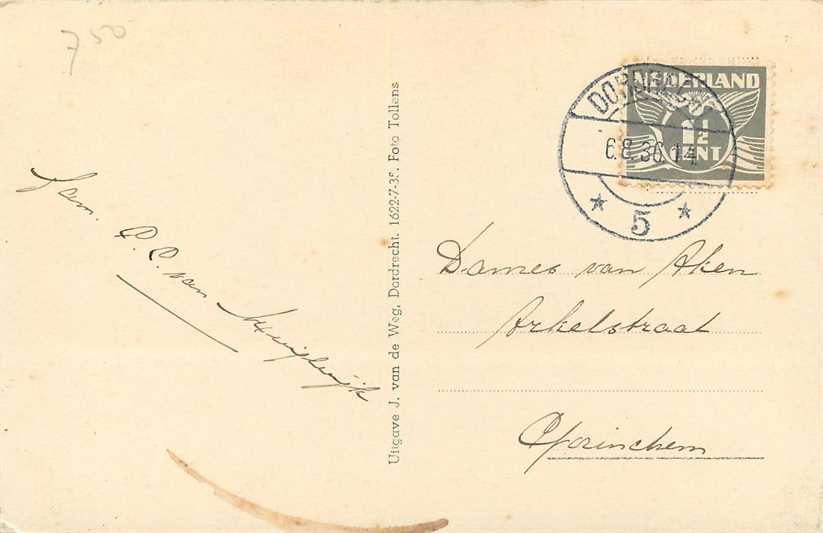 750
Fam. P. C. van
Uitgave J. van de Weg, Dordrecht. 1622-7-3F. Foto Tollens
NEDERLAND
1½
CENT
DORDRECHT
6.8.36.14
* 5 *
Dames van Aken
Arkelstraat
Gorinchem